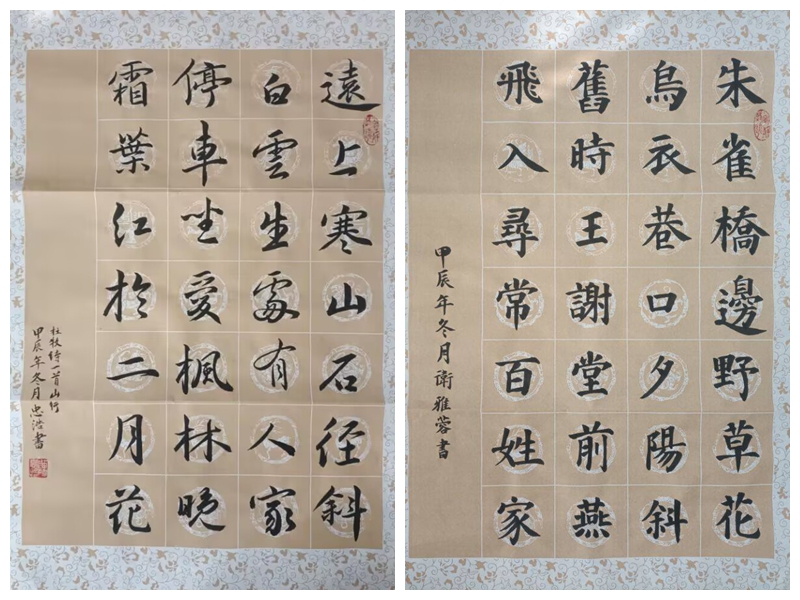 遠上寒山石徑斜
白雲生處有人家
停車坐愛楓林晚
霜葉紅於二月花
杜牧詩一首山行
甲辰年冬月忠浩書
朱雀橋邊野草花
烏衣巷口夕陽斜
舊時王謝堂前燕
飛入尋常百姓家
甲辰年冬月衛雅蓉書